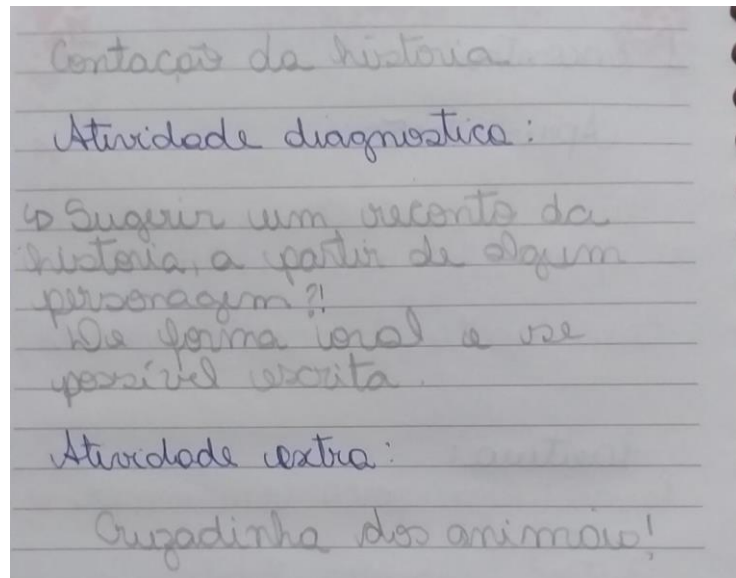 Contacão da historia
Atividade diagnostica:
↳ Sugerir um reconto da
historia, a partir de algum
personagem?!
De forma oral e se
possível escrita.
Atividade extra:
Cruzadinha dos animais!